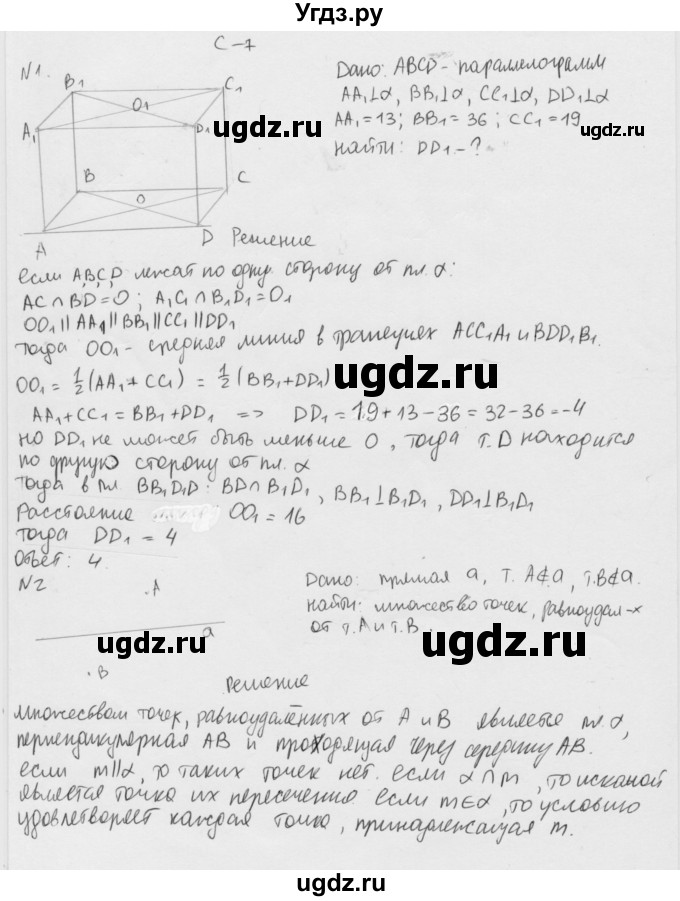 Угдз.ру
С-7
N1.
B1
C1
O1
A1
D1
B
C
O
A
D
Дано: ABCD - параллелограмм
AA1⊥α, BB1⊥α, CC1⊥α, DD1⊥α
AA1=13; BB1=36; CC1=19
Найти: DD1-?
Решение
если A,B,C,D лежат по одну сторону от пл. α:
AC∩BD=O; A1C1∩B1D1=O1
OO1||AA1||BB1||CC1||DD1
Тогда OO1 - средняя линия в трапециях ACC1A1 и BDD1B1.
OO1 = 1/2(AA1+CC1) = 1/2(BB1+DD1)
AA1+CC1=BB1+DD1 => DD1=19+13-36=32-36=-4
но DD1 не может быть меньше 0, тогда т. D находится
по другую сторону от пл. α
Тогда в пл. BB1D1D: BD∩B1D1, BB1⊥B1D1, DD1⊥B1D1
Расстояние OO1=16
Тогда DD1=4
Ответ: 4.
N2
.A
a
.B
Дано: прямая a, т. A∉a, т.B∉a.
Найти: множество точек, равноудал-х
от т.A и т.B.
Решение
Множеством точек, равноудалённых от A и B является пл. α,
перпендикулярная AB и проходящая через середину AB.
если m||α, то таких точек нет. если α∩m, то искомой
является точка их пересечения если m∈α, то условию
удовлетворяет каждая точка, принадлежащая m.
ugdz.ru
ugdz.ru
ugdz.ru
ugdz.ru
ugdz.ru
ugdz.ru
ugdz.ru